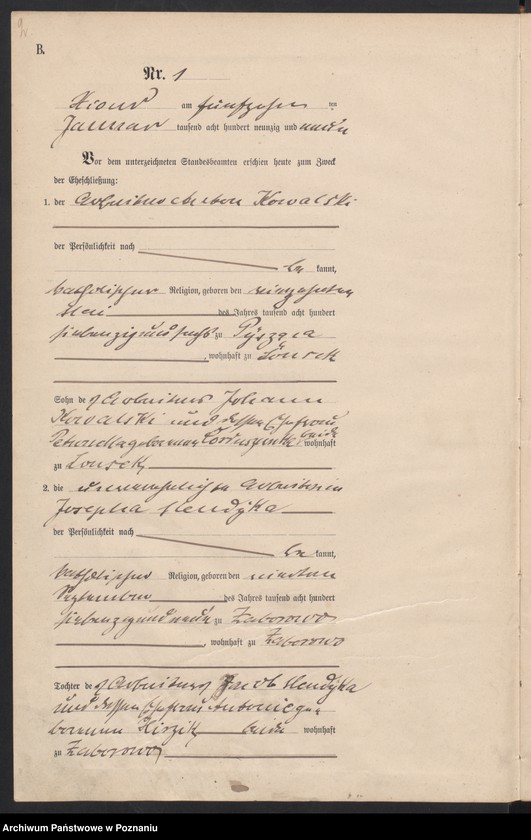 B.
Nr. 1
Xions am fünfzehn ten
Januar tausend acht hundert neunzig und neun
Vor dem unterzeichneten Standesbeamten erschien heute zum Zweck
der Eheschließung:
1. der Arbeiter Anton Kowalski
der Persönlichkeit nach
be kannt,
katholischer Religion, geboren den
Mai des Jahres tausend acht hundert
siebenzig und sechs zu Pysząca
, wohnhaft zu Konsck
Sohn des Arbeiters Johann
Kowalski und dessen Ehefrau
Petronella geborenen beide wohnhaft
zu
2. die unverehelichte Arbeiterin
Josepha Mendyka
der Persönlichkeit nach
be kannt,
katholischer Religion, geboren den vierten
September des Jahres tausend acht hundert
siebenzig und neun zu Zaborowo
, wohnhaft zu Zaborowo
Tochter des Arbeiters Jacob Mendyka
und dessen Ehefrau Antonie ge-
borenen beide wohnhaft
zu Zaborowo
Archiwum Państwowe w Poznaniu